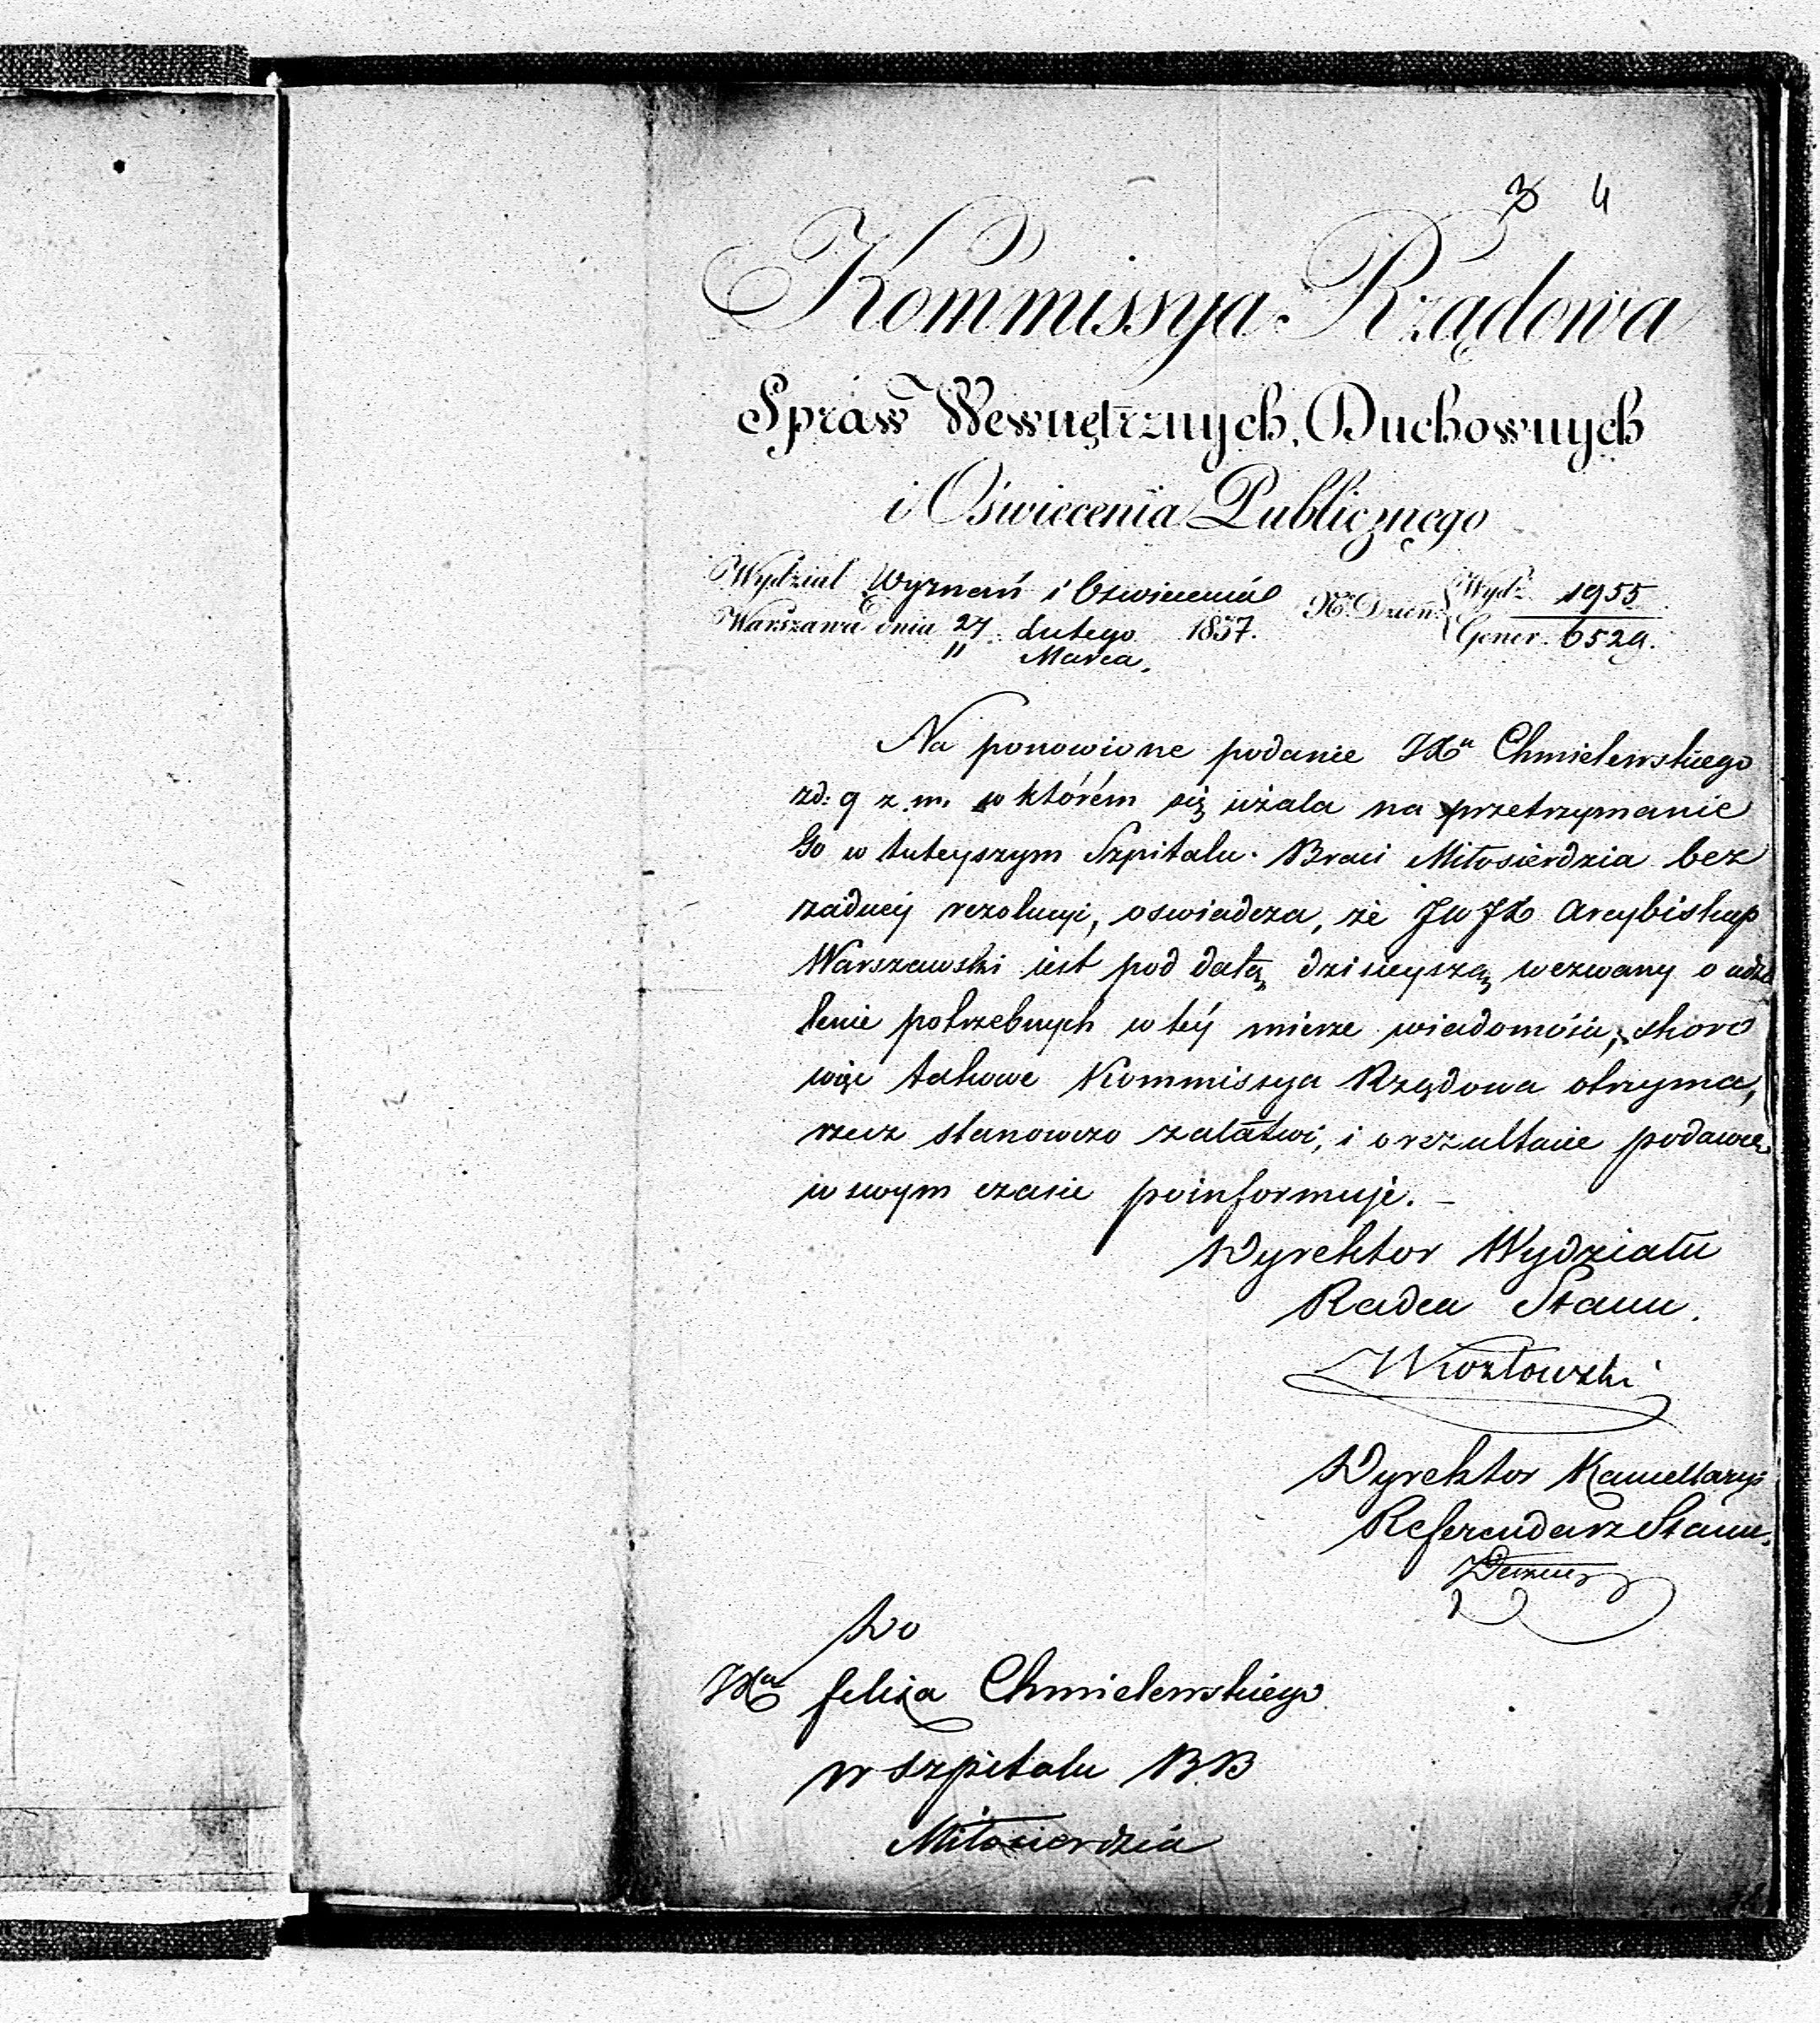 3 4
Kommissya Rządowa
Spraw Wewnętrznych, Duchownych
i Oświecenia Publicznego
Wydział Wyznań i Oswiecenia Nr Dzien: Wydz. 1955
Warszawa dnia 27 Lutego 1837. Gener. 6529.
11 Marca.
Na ponowione podanie JXa Chmielewskiego
zd: 9 z. m. w którém się użala na przetrzymanie
Go w tuteyszym Szpitalu Braci Miłosierdzia bez
żadnéy rezolucyi, oswiadcza, że JW JX Arcybiskup
Warszawski jest pod datą dzisieyszą wezwany o udzie
lenie potrzebnych w téy mierze wiadomości, skoro
więc takowe Kommissya Rządowa otrzyma,
rzecz stanowczo załatwi, i o rezultacie podawcę
w swym czasie poinformuje. –
Dyrektor Wydziału
Radca Stanu.
Dyrektor Kancellaryi
Referendarz Stanu.
Do
JXa Felixa Chmielewskiego
w szpitalu BB
Miłosierdzia